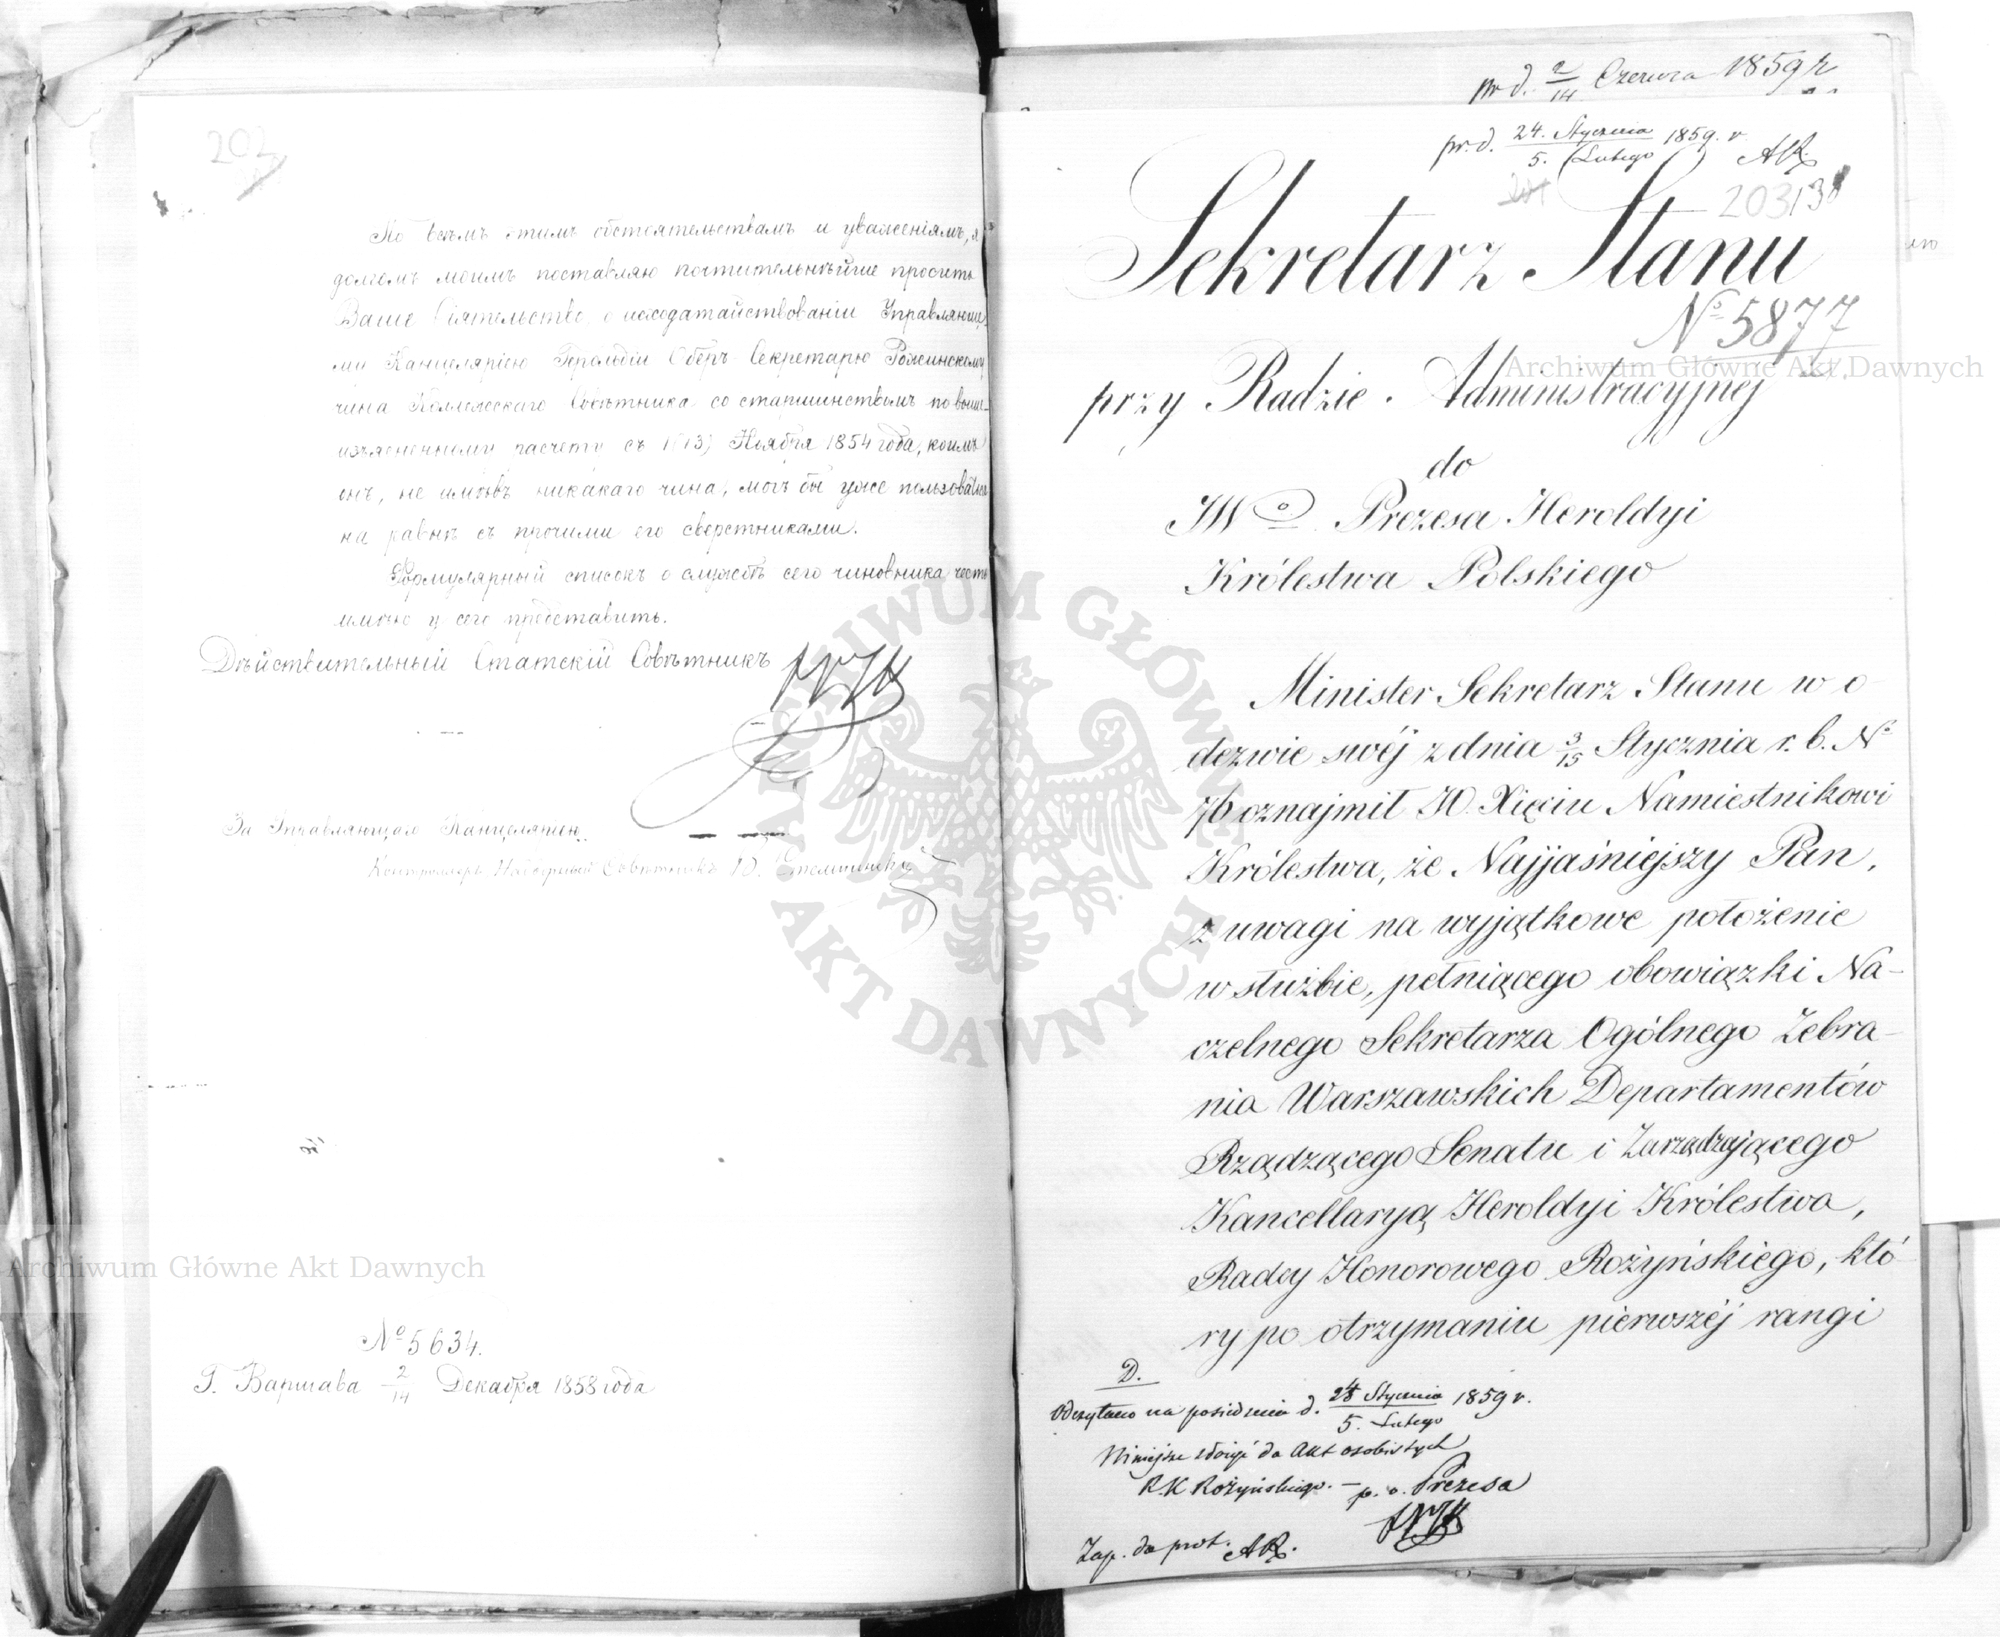 202
По всѣмъ этимъ обстоятельствамъ и уваженіямъ, я
долгомъ моимъ поставляю почтительнѣйше просить
Ваше Сіятельство о исходатайствованіи Управляюще-
му Канцеляріею Герольдіи Оберъ-Секретарю Рожинскому
чина Коллежскаго Совѣтника со старшинствомъ по выше-
изъясненному расчету съ 1 (13) Ноября 1854 года, коимъ
онъ, не имѣвъ никакаго чина, могъ бы уже пользоваться
на равнѣ съ прочими его сверстниками.
Формулярный списокъ о службѣ сего чиновника честь
имѣю у сего представить.
Дѣйствительный Статскій Совѣтникъ
За Управляющаго Канцеляріею
Контролеръ Надворный Совѣтникъ Ю.
№ 5634.
Г. Варшава 2/14 Декабря 1858 года
pr. d. 2/14 Czerwca 1859 r
pr. d. 24. Stycznia / 5. Lutego 1859. r.
203 138
Sekretarz Stanu
№ 5877
przy Radzie Administracyjnej
do
JWo Prezesa Heroldyi
Królestwa Polskiego
Minister Sekretarz Stanu w o-
dezwie swéj z dnia 3/15 Stycznia r. b. No
76 oznajmił JO. Xięciu Namiestnikowi
Królestwa, że Najjaśniejszy Pan,
z uwagi na wyjątkowe położenie
w służbie, pełniącego obowiązki Na-
czelnego Sekretarza Ogólnego Zebra-
nia Warszawskich Departamentów
Rządzącego Senatu i Zarządzającego
Kancellaryą Heroldyi Królestwa,
Radcy Honorowego Rożyńskiego, któ-
ry po otrzymaniu pierwszéj rangi
D.
Odczytano na posiedzeniu d. 24 Stycznia / 5. Lutego 1859 r.
Niniejsze złożyć do Akt osobistych
R. K. Rożyńskiego. — p. o. Prezesa
Zap. do prot.
Archiwum Główne Akt Dawnych
Archiwum Główne Akt Dawnych
ARCHIWUM GŁÓWNE AKT DAWNYCH